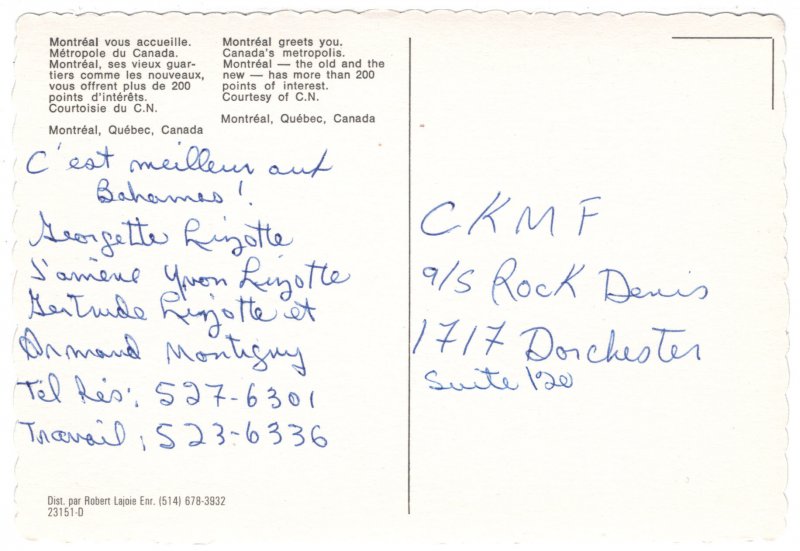 Montréal vous accueille.
Métropole du Canada.
Montréal, ses vieux quar-
tiers comme les nouveaux,
vous offrent plus de 200
points d'intérêts.
Courtoisie du C.N.
Montréal, Québec, Canada
Montréal greets you.
Canada's metropolis.
Montréal — the old and the
new — has more than 200
points of interest.
Courtesy of C.N.
Montréal, Québec, Canada
C'est meilleur aux
Bahamas!
Georgette Lizotte
J'amène Yvon Lizotte
Gertrude Lizotte et
Armand Montigny
Tél Rés: 527-6301
Travail: 523-6336
CKMF
a/s Rock Denis
1717 Dorchester
Suite 120
Dist. par Robert Lajoie Enr. (514) 678-3932
23151-D